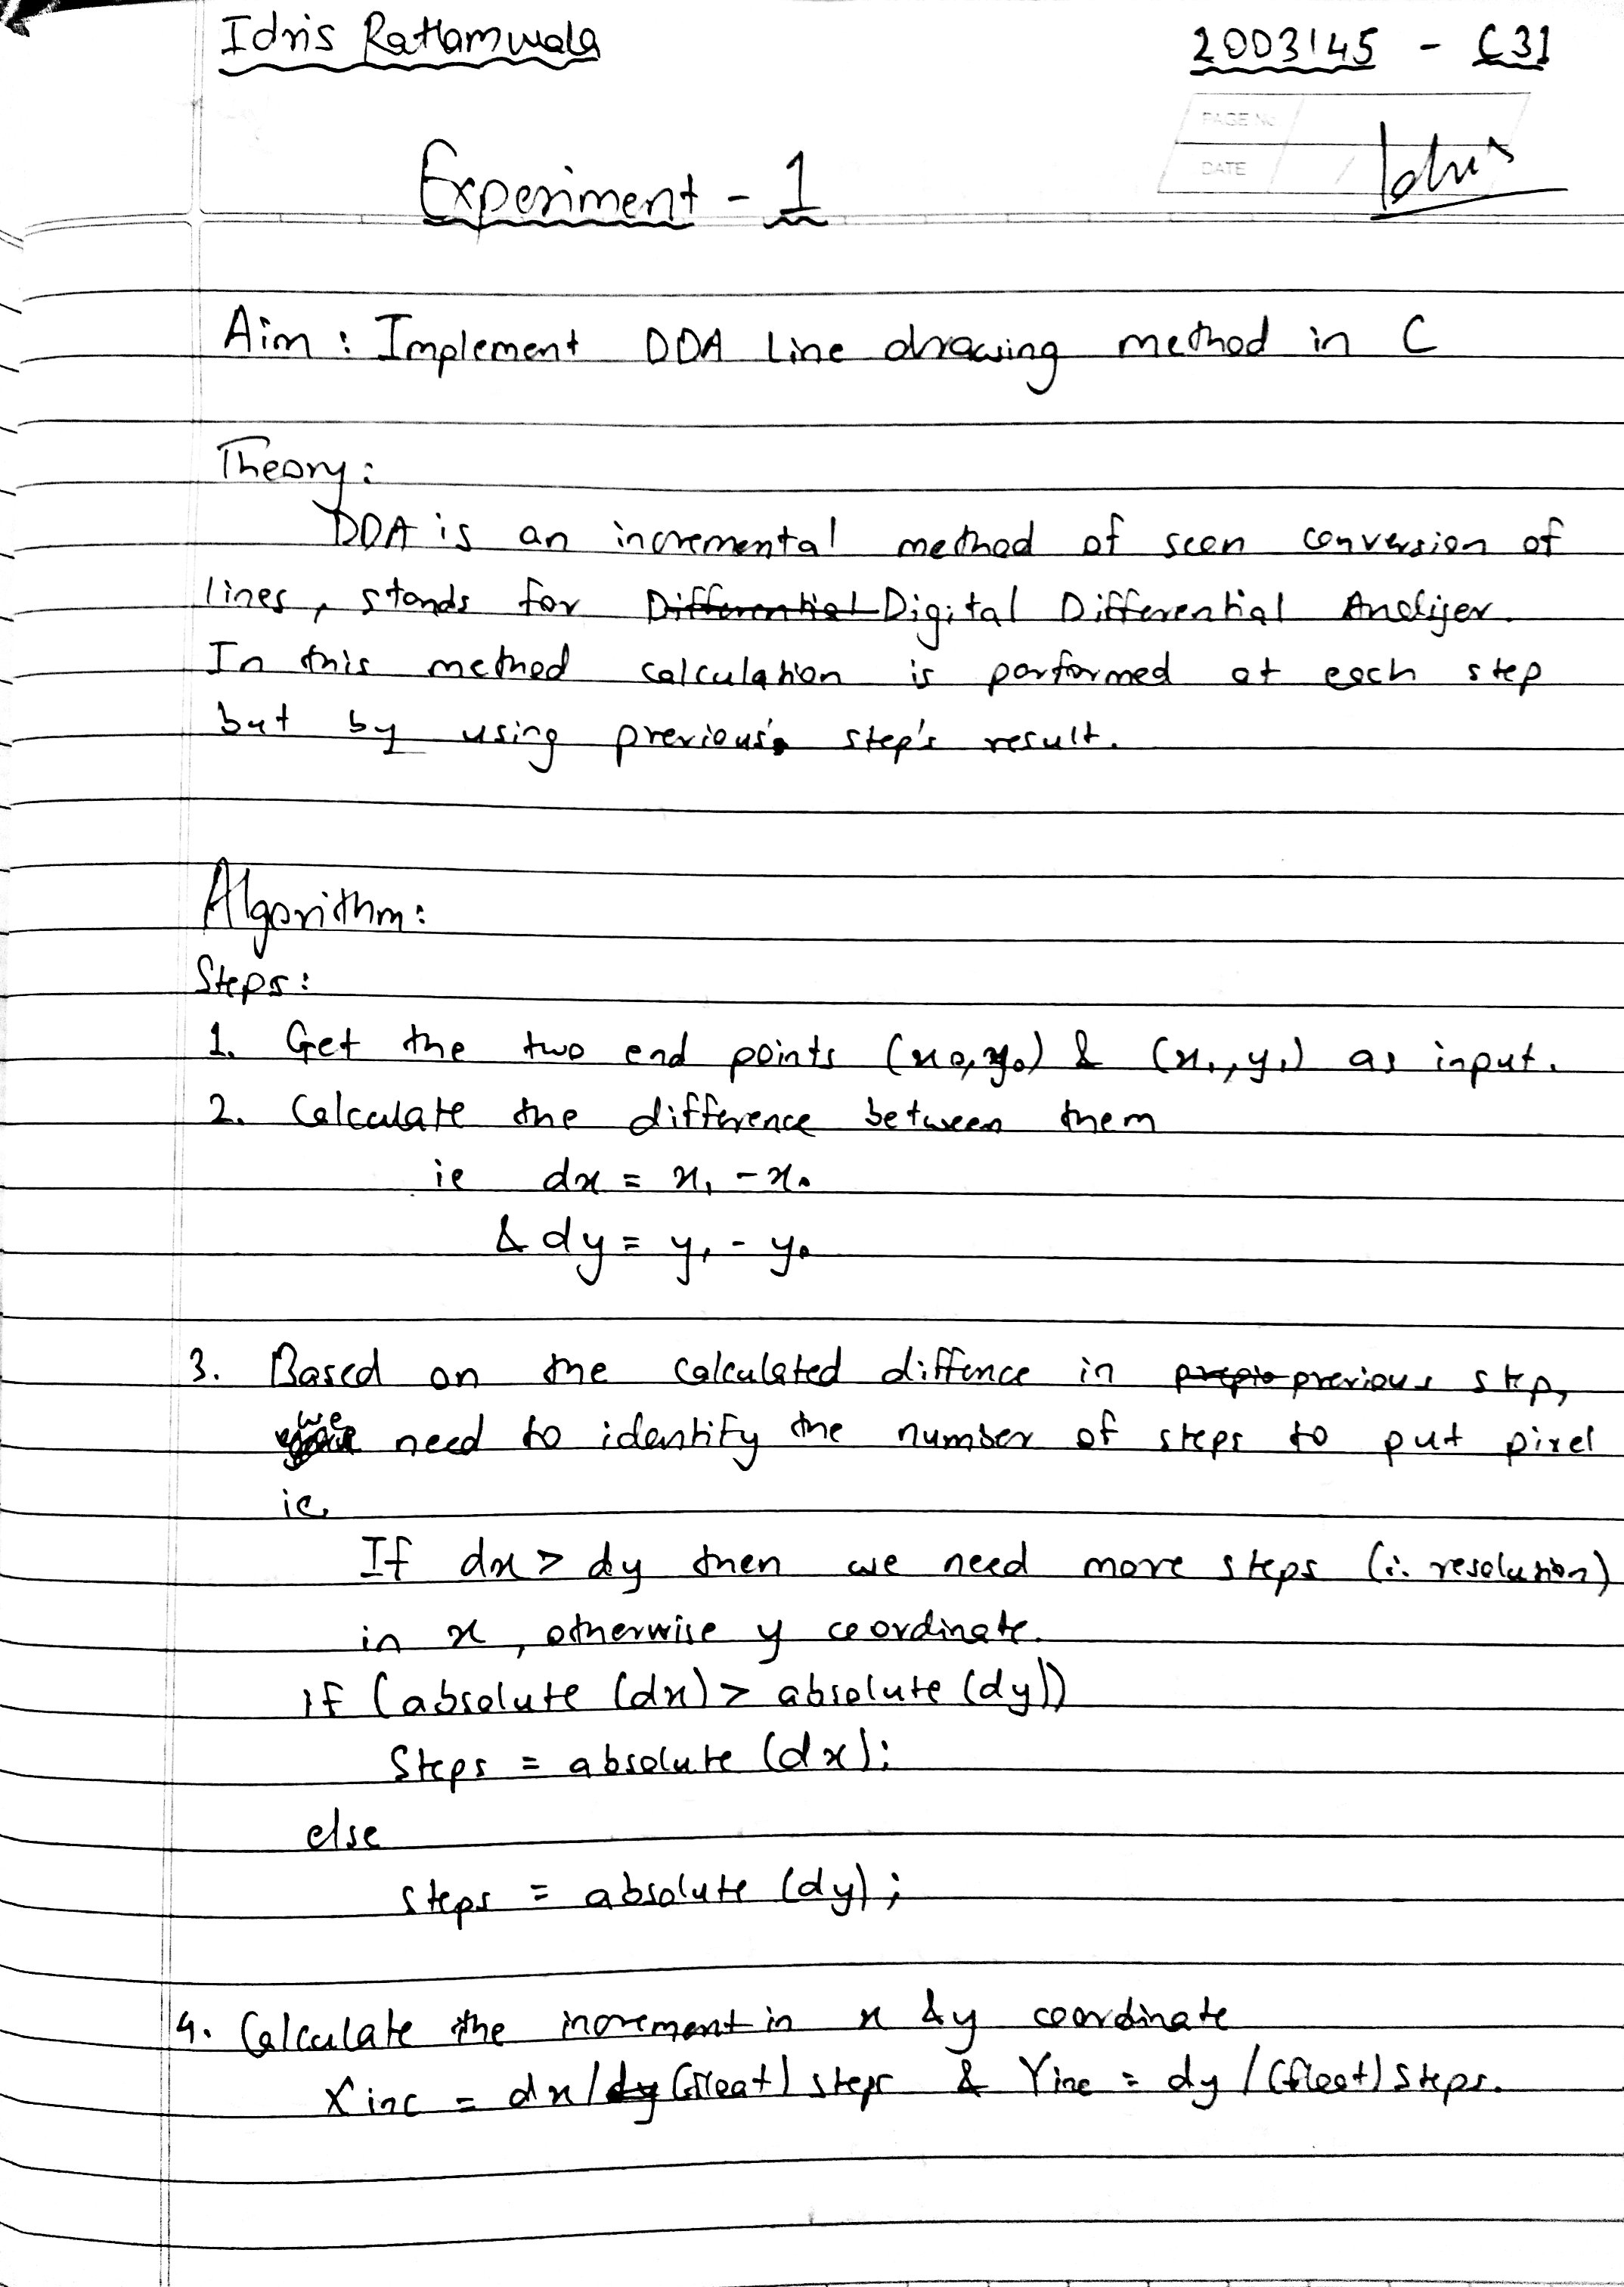 Idris Ratlamwala
2003145 - C31
PAGE No
DATE / Idris
Experiment - 1
Aim : Implement DDA Line drawing method in C
Theory :
DDA is an incremental method of scan conversion of
lines, stands for Differential Digital Differential Analizer.
In this method calculation is performed at each step
but by using previous's step's result.
Algorithm :
Steps :
1. Get the two end points (x₀, y₀) & (x₁, y₁) as input.
2. Calculate the difference between them
ie dx = x₁ - x₀
& dy = y₁ - y₀
3. Based on the calculated diffence in prepio previous step,
we need to identify the number of steps to put pixel
ie.
If dx > dy then we need more steps (i. resolution)
in x, otherwise y coordinate.
if (absolute (dx) > absolute (dy))
Steps = absolute (dx);
else
steps = absolute (dy);
4. Calculate the increment in x & y coordinate
Xinc = dx / dy (float) steps & Yinc = dy / (float) steps.